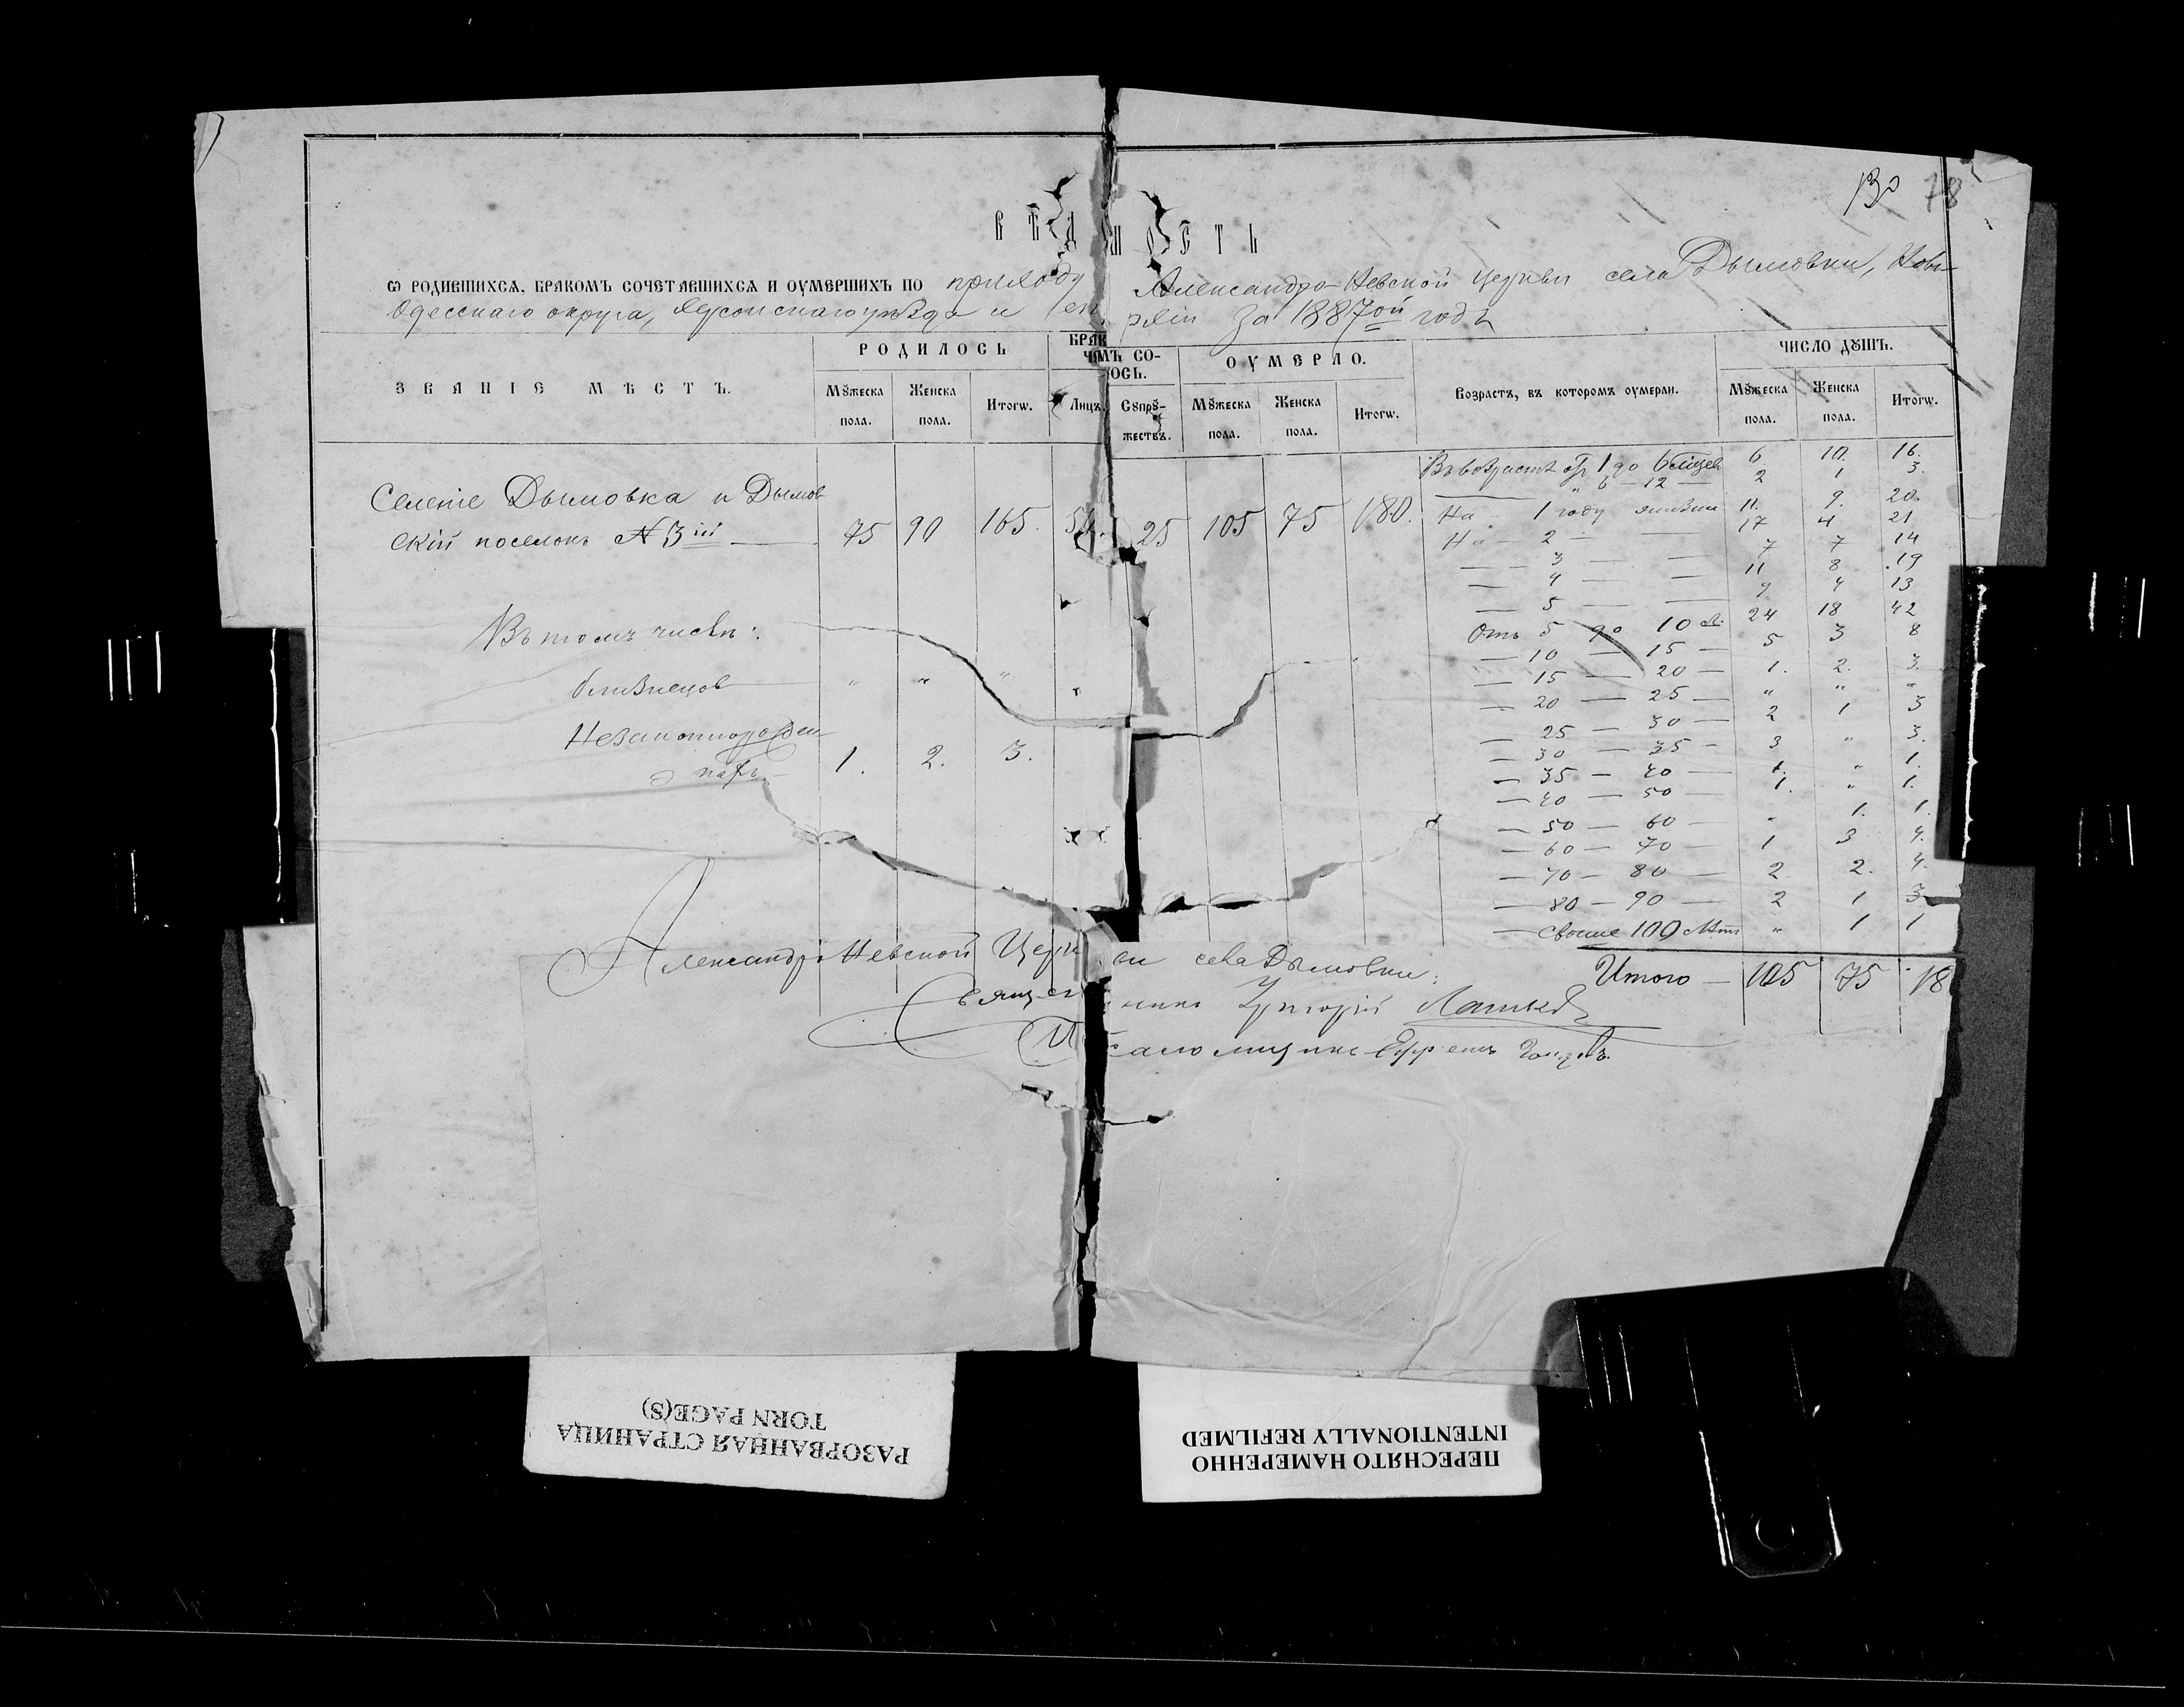 130 78
ВѢДОМОСТЬ
Ѡ РОДИВШИХСѦ, БРАКОМЪ СОЧЕТАВШИХСѦ И ОУМЕРШИХЪ ПО приходу Александро-Невской церкви села Дымовки, Ново-
Одесскаго округа, Херсонскаго уѣзда и епархіи за 1887ой годъ
ЗВАНІЕ МѢСТЪ.
РОДИЛОСЬ
БРАКОМЪ СО-
ЧЛОСЬ.
ОУМЕРЛО.
Возрастъ, въ которомъ оумерли.
ЧИСЛО ДꙊШЪ.
МꙊжеска пола. Женска пола. Итогѡ. Лицъ. СꙊпрꙊ-жествъ. МꙊжеска пола. Женска пола. Итогѡ. МꙊжеска пола. Женска пола. Итогѡ.
Селеніе Дымовка и Дымов
скій поселокъ №3ій — 75 90 165. 25 105 75 180.
Въ томъ числѣ:
близнецов — " " "
Незаконнорожден
1. 2. 3.
Въ возрастѣ от 1 до 6 мѣсяцев 6. 10. 16.
" 6 — 12 — 2 1 3.
На — 1 году жизни 11. 9. 20.
На — 2 — — 17 4 21
— — 3 — — 7 7 14
— 4 — — 11 8 19
— 5 — — 9 4 13
Отъ 5 до 10 л. 24 18 42
— 10 — 15 — 5 3 8
— 15 — 20 — 1. 2. 3.
— 20 — 25 — " " "
— 25 — 30 — 2 1 3
— 30 — 35 — 3 " 3.
— 35 — 40 — 1. " 1.
— 40 — 50 — 1. " 1.
— 50 — 60 — " 1. 1.
— 60 — 70 — 1 3 4.
— 70 — 80 — 2. 2. 4.
— 80 — 90 — 2 1 3
— свыше 100 лѣтъ " 1 1
Итого — 105 75 18
Александро Невской Церкви села Дымовки:
Священникъ Григорій
Псаломщикъ Ефремъ
РАЗОРВАННАЯ СТРАНИЦА
TORN PAGE(S)
ПЕРЕСНЯТО НАМЕРЕННО
INTENTIONALLY REFILMED